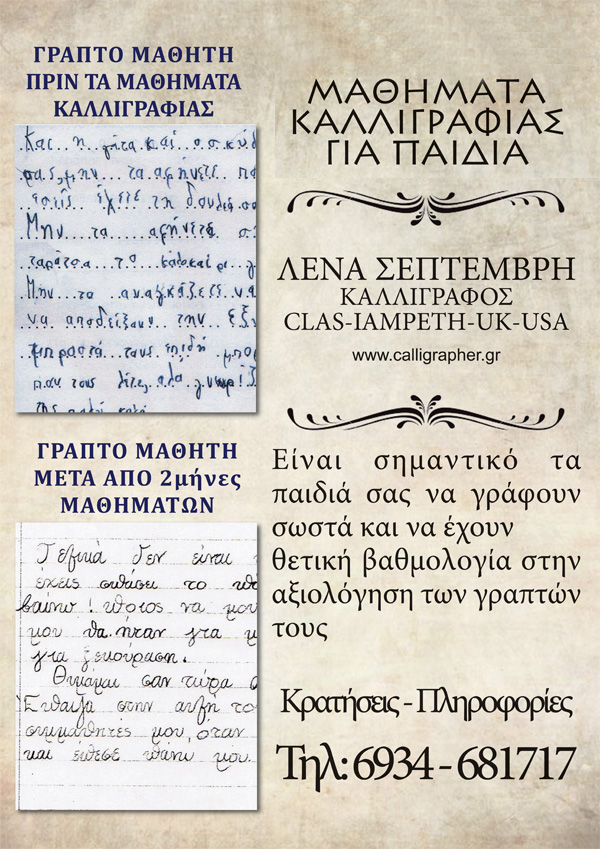 ΓΡΑΠΤΟ ΜΑΘΗΤΗ
ΠΡΙΝ ΤΑ ΜΑΘΗΜΑΤΑ
ΚΑΛΛΙΓΡΑΦΙΑΣ
Και η γάτα και ο σκύ
μην τα αφήνετε
εσείς έχετε τη δουλειά
Μην τα αφήνετε
ταράτσα το καλοκαίρι
Μην τα αναγκάζετε να
να αποδείξουν την εξ
μπροστά τους επιδή μπορ
ΓΡΑΠΤΟ ΜΑΘΗΤΗ
ΜΕΤΑ ΑΠΟ 2μήνες
ΜΑΘΗΜΑΤΩΝ
Τελικά δεν είναι
έχεις φτάσει το
βαίνω! Ποιος να μου
μου θα ήταν για μ
για ξεκούραση.
Θυμάμαι σαν τώρα
Έπαιζα στην αυλή το
συμμαθητές μου, όταν
και έπεσε πάνω μου
ΜΑΘΗΜΑΤΑ
ΚΑΛΛΙΓΡΑΦΙΑΣ
ΓΙΑ ΠΑΙΔΙΑ
ΛΕΝΑ ΣΕΠΤΕΜΒΡΗ
ΚΑΛΛΙΓΡΑΦΟΣ
CLAS-IAMPETH-UK-USA
www.calligrapher.gr
Είναι σημαντικό τα
παιδιά σας να γράφουν
σωστά και να έχουν
θετική βαθμολογία στην
αξιολόγηση των γραπτών
τους
Κρατήσεις - Πληροφορίες
Τηλ: 6934 - 681717